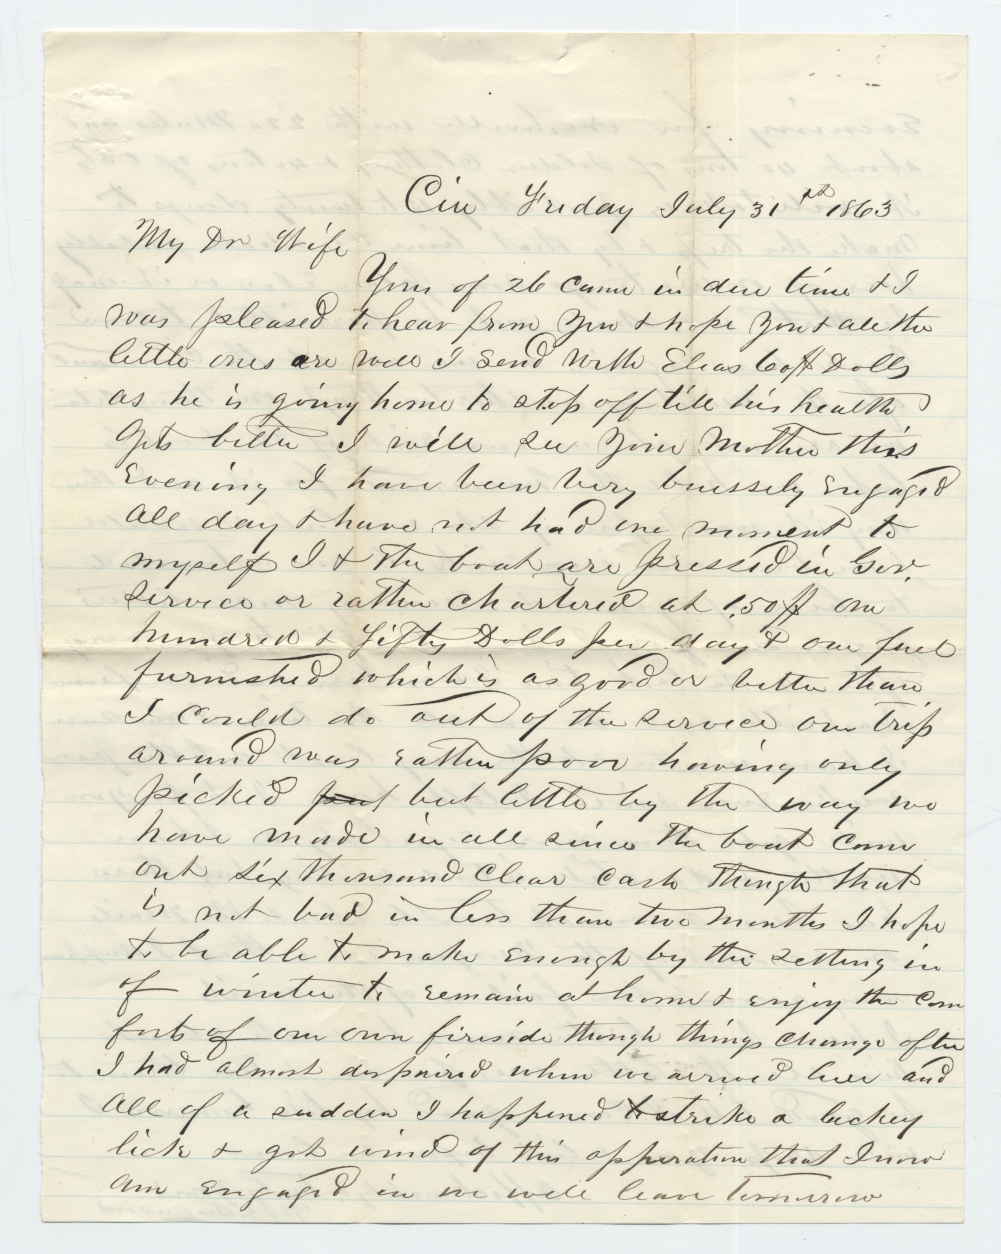 Cin Friday July 31st 1863
My Dr Wife
Yours of 26 came in due time & I
was pleased to hear from You & hope You & all the
little ones are well I send with Elias 60ff Dolls
as he is going home to stop off till his health
Gets better I will see Your Mother this
Evening I have been Very buessely Engaged
All day & have not had one moment to
myself I & the boat are pressed in Gov.
Service or rather Chartered at 1,50ff One
hundred & Fifty Dolls per day & our fuel
furnished which is as good or better than
I Could do out of the service our trip
around was rather poor having only
picked but little by the way we
have made in all since the boat came
out six thousand Clear Cash though that
is not bad in less than two Months I hope
to be able to make Enough by the setting in
of winter to remain at home & enjoy the Com
forts of our own fireside though things change often
I had almost despaired when we arrived here and
All of a sudden I happened to strike a luckey
lick & got wind of this opperation that I now
Am Engaged in we will leave tomorrow